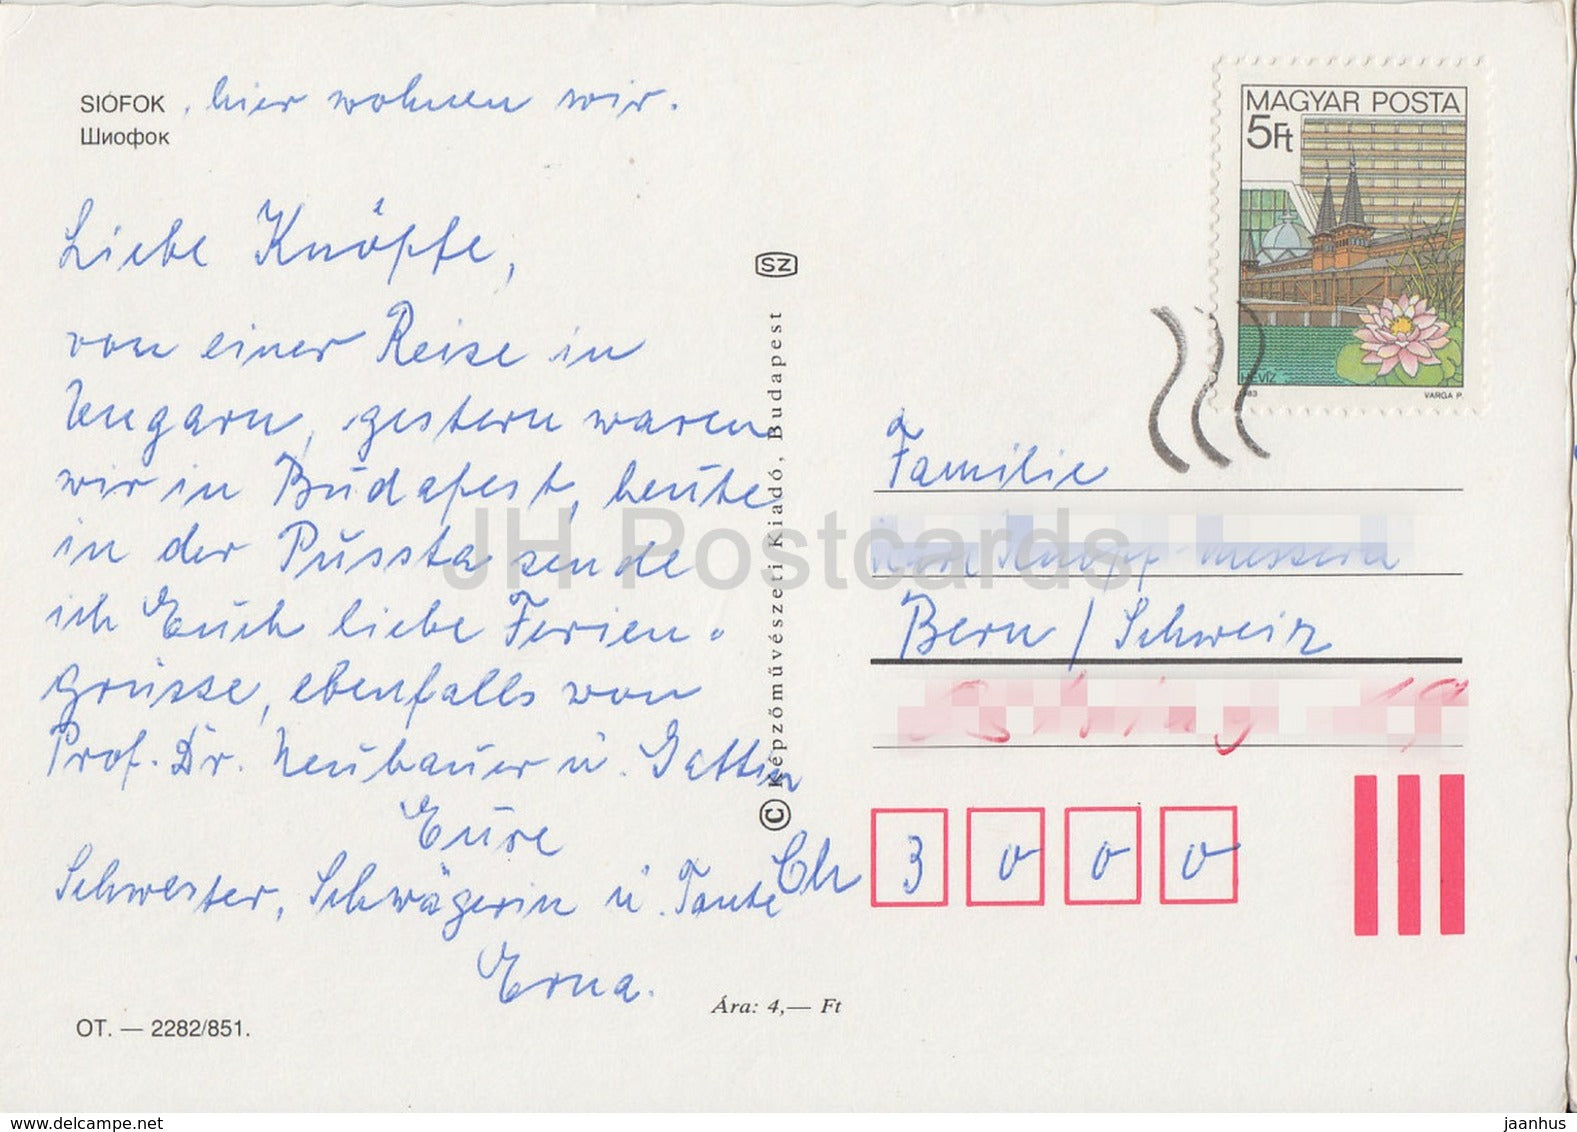 SIÓFOK, hier wohnen wir.
Шиофок
Liebe Knöpfe,
von einer Reise in
Ungarn, gestern waren
wir in Budapest, heute
in der Pussta sende
ich Euch liebe Ferien-
grüsse, ebenfalls von
Prof. Dr. Neubauer u. Gattin
Eure
Schwester, Schwägerin u. Tante
Erna.
OT. — 2282/851.
Ára: 4,— Ft
SZ
© Képzőművészeti Kiadó, Budapest
MAGYAR POSTA
5Ft
HÉVÍZ
VARGA P.
Familie
Bern / Schweiz
Ch 3000
JH Postcards
www.delcampe.net
jaanhus